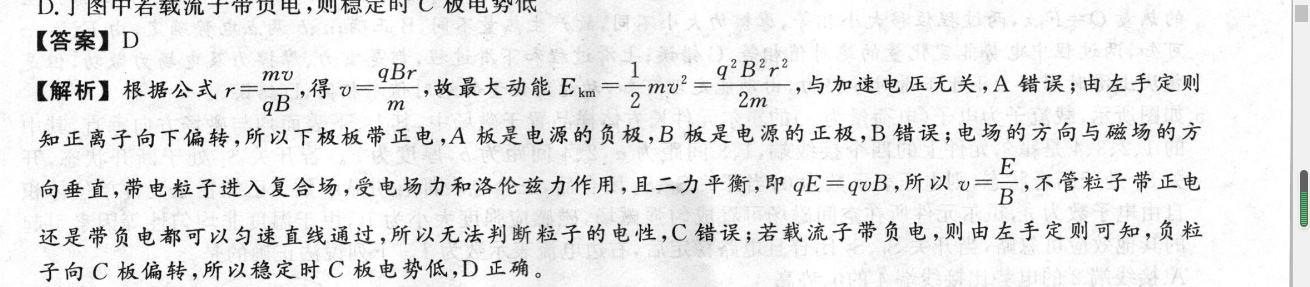 D.丁图中若载流子带负电,则稳定时 C 板电势低
【答案】D
【解析】根据公式 r=mv/qB,得 v=qBr/m,故最大动能 Eₖₘ=1/2mv²=q²B²r²/2m,与加速电压无关,A 错误;由左手定则
知正离子向下偏转,所以下极板带正电,A 板是电源的负极,B 板是电源的正极,B 错误;电场的方向与磁场的方
向垂直,带电粒子进入复合场,受电场力和洛伦兹力作用,且二力平衡,即 qE=qvB,所以 v=E/B,不管粒子带正电
还是带负电都可以匀速直线通过,所以无法判断粒子的电性,C 错误;若载流子带负电,则由左手定则可知,负粒
子向 C 板偏转,所以稳定时 C 板电势低,D 正确。